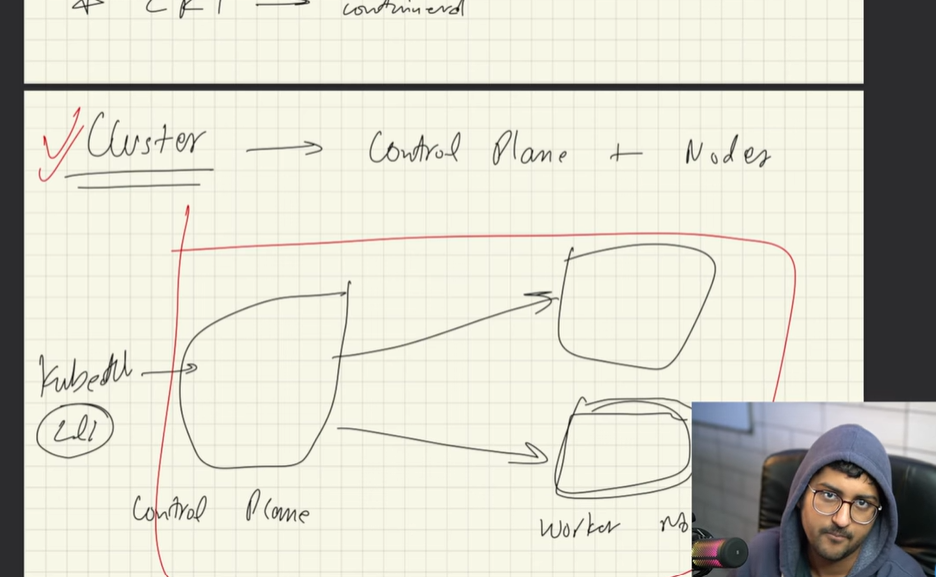 * CRI → containerd
Cluster → Control Plane + Nodes
Kubectl →
CLI
Control Plane
Worker